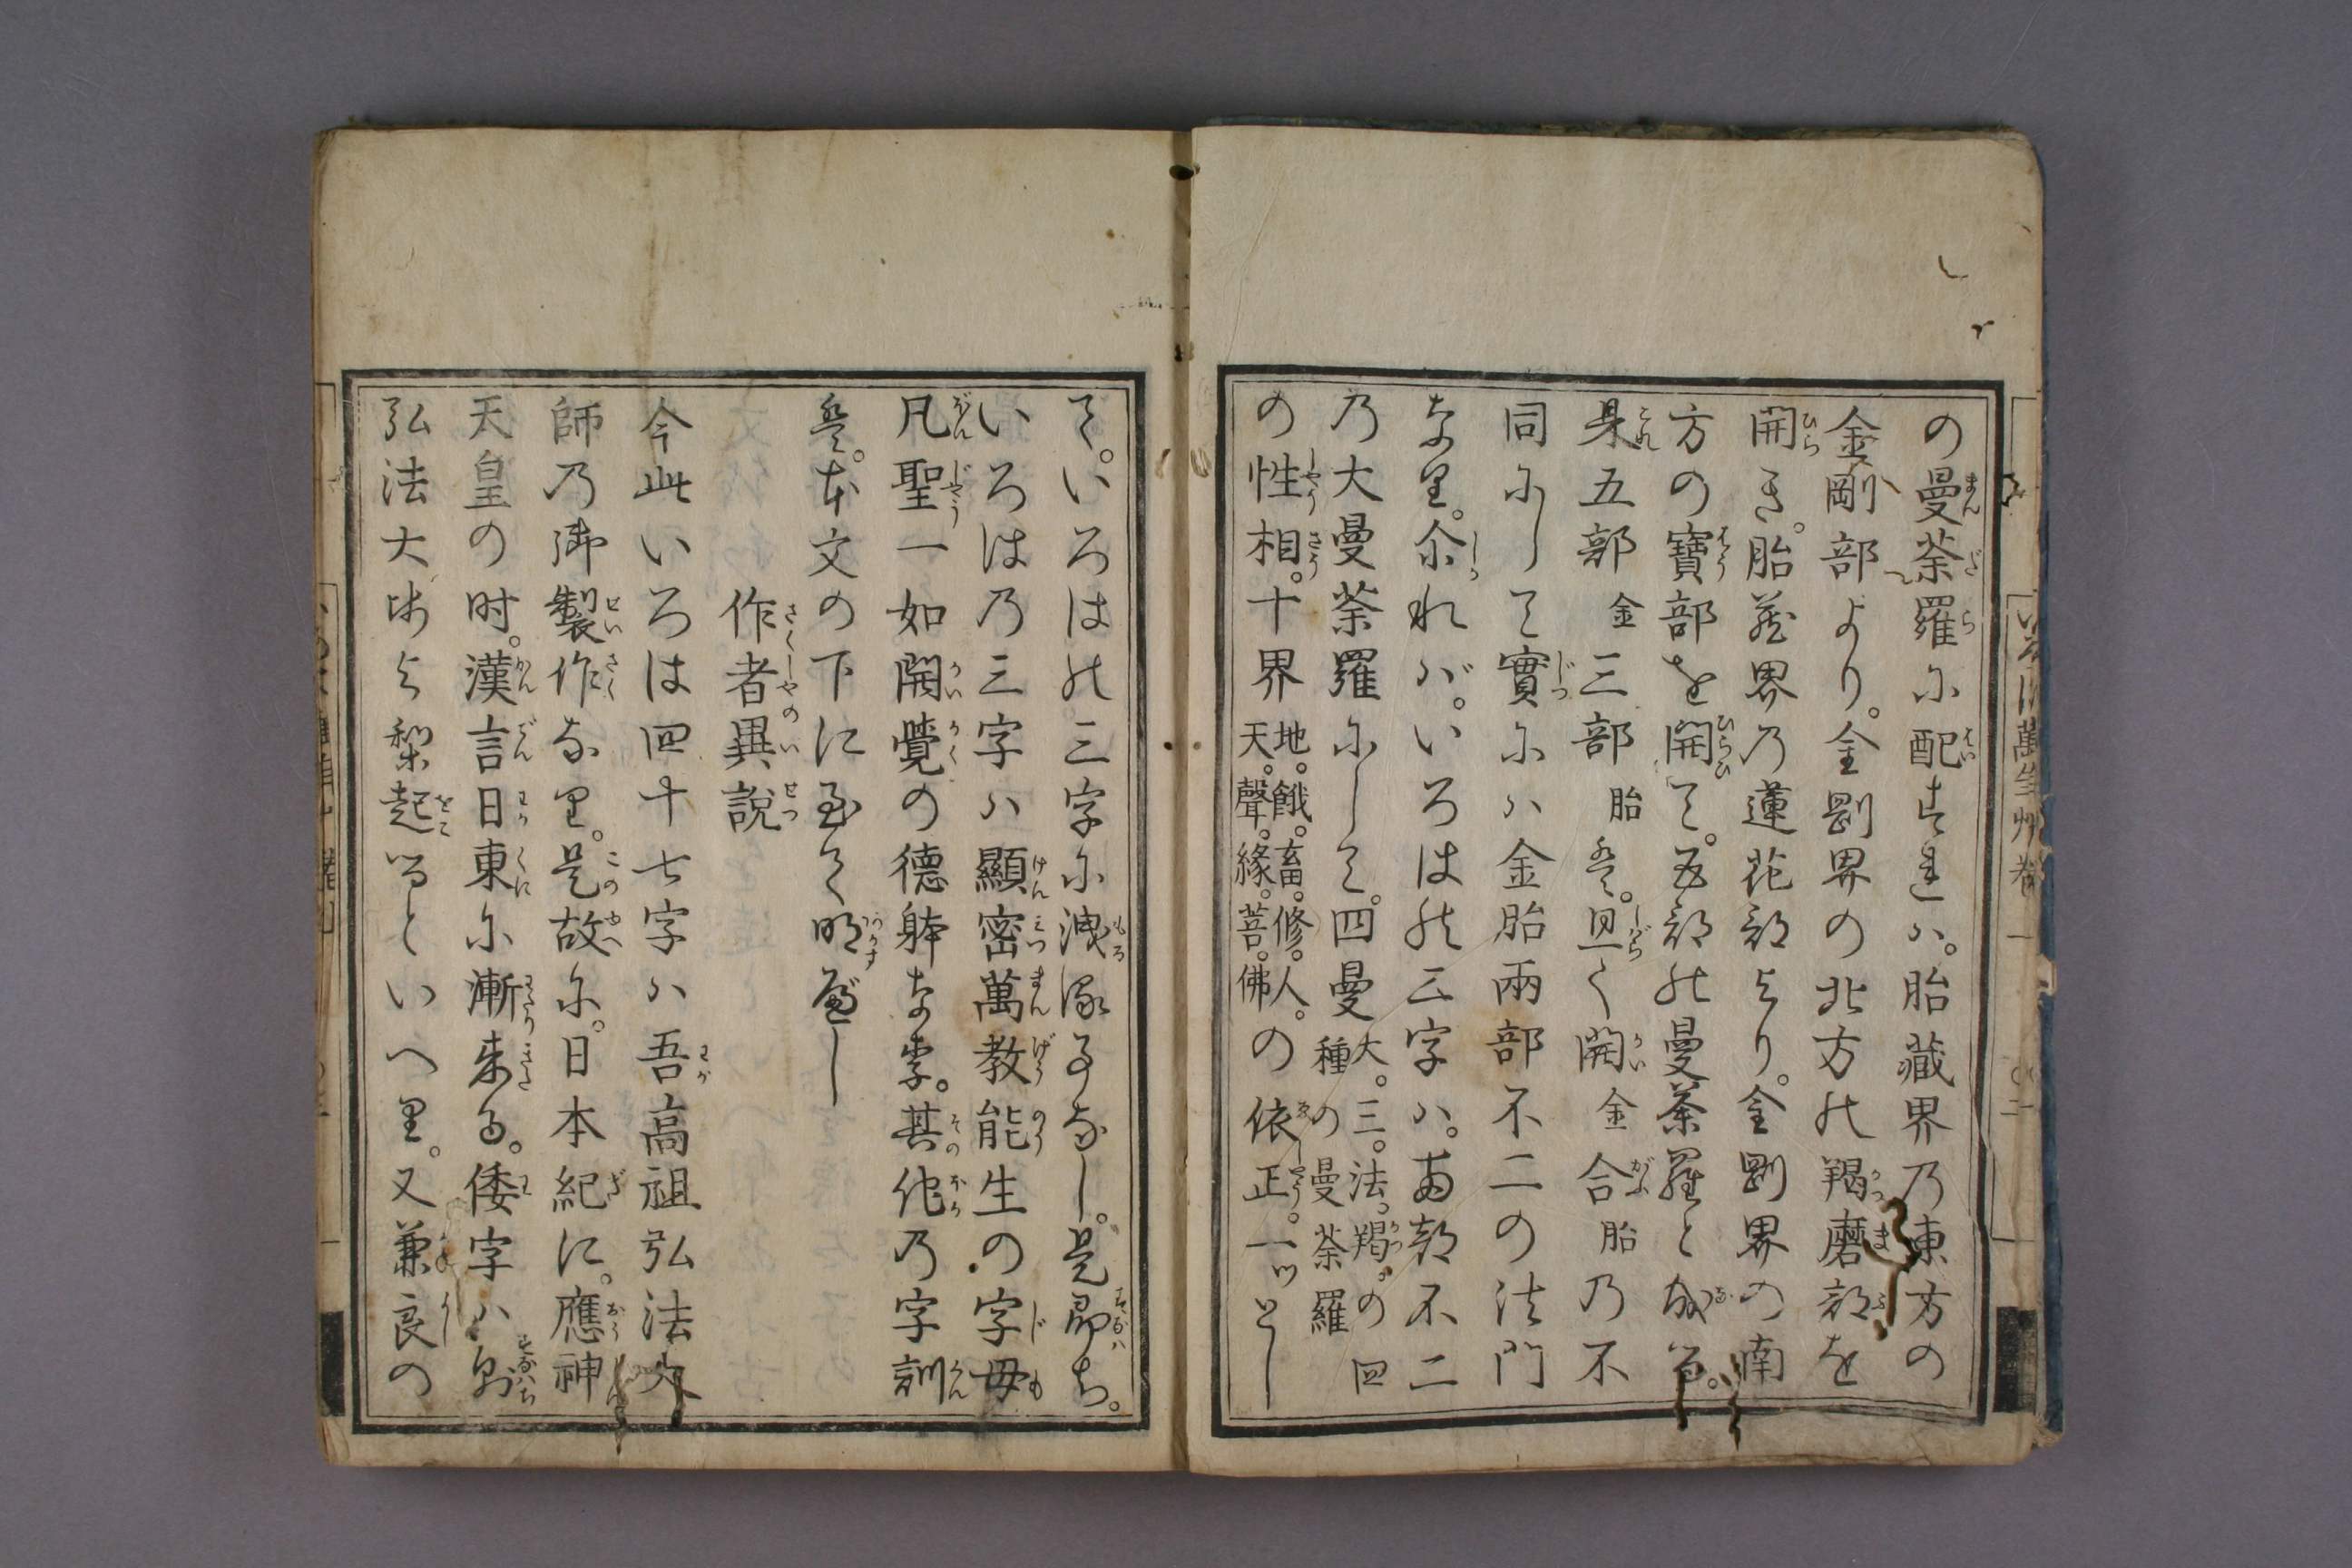 の曼荼羅に配すれハ。胎藏界乃東方の
金剛部より。金剛界の北方の羯磨部を
開き。胎藏界乃蓮花部より。金剛界の南
方の寶部を開ひて。五部の曼荼羅と成る。
是五部金三部胎是。且く開金合胎乃不
同にして實にハ金胎兩部不二の法門
なり。尓れバ。いろは の三字ハ。兩部不二
乃大曼荼羅にして。四曼大。三。法。羯。の四種の曼荼羅
の性相。十界地。餓。畜。修。人。天。聲。緣。菩。佛の依正。一ツとし
て。いろはの三字に洩るゝ事なし。是即ち。
いろは乃三字ハ顯密萬教能生の字母
凡聖一如開覺の德躰なり。其他乃字訓
是。本文の下に至て明すべし
作者異説
今此いろは四十七字ハ吾高祖弘法大
師乃御製作なり。是故に。日本紀に。應神
天皇の时。漢言日東に漸来る。倭字ハ則
弘法大师より起るといへり。又兼良の